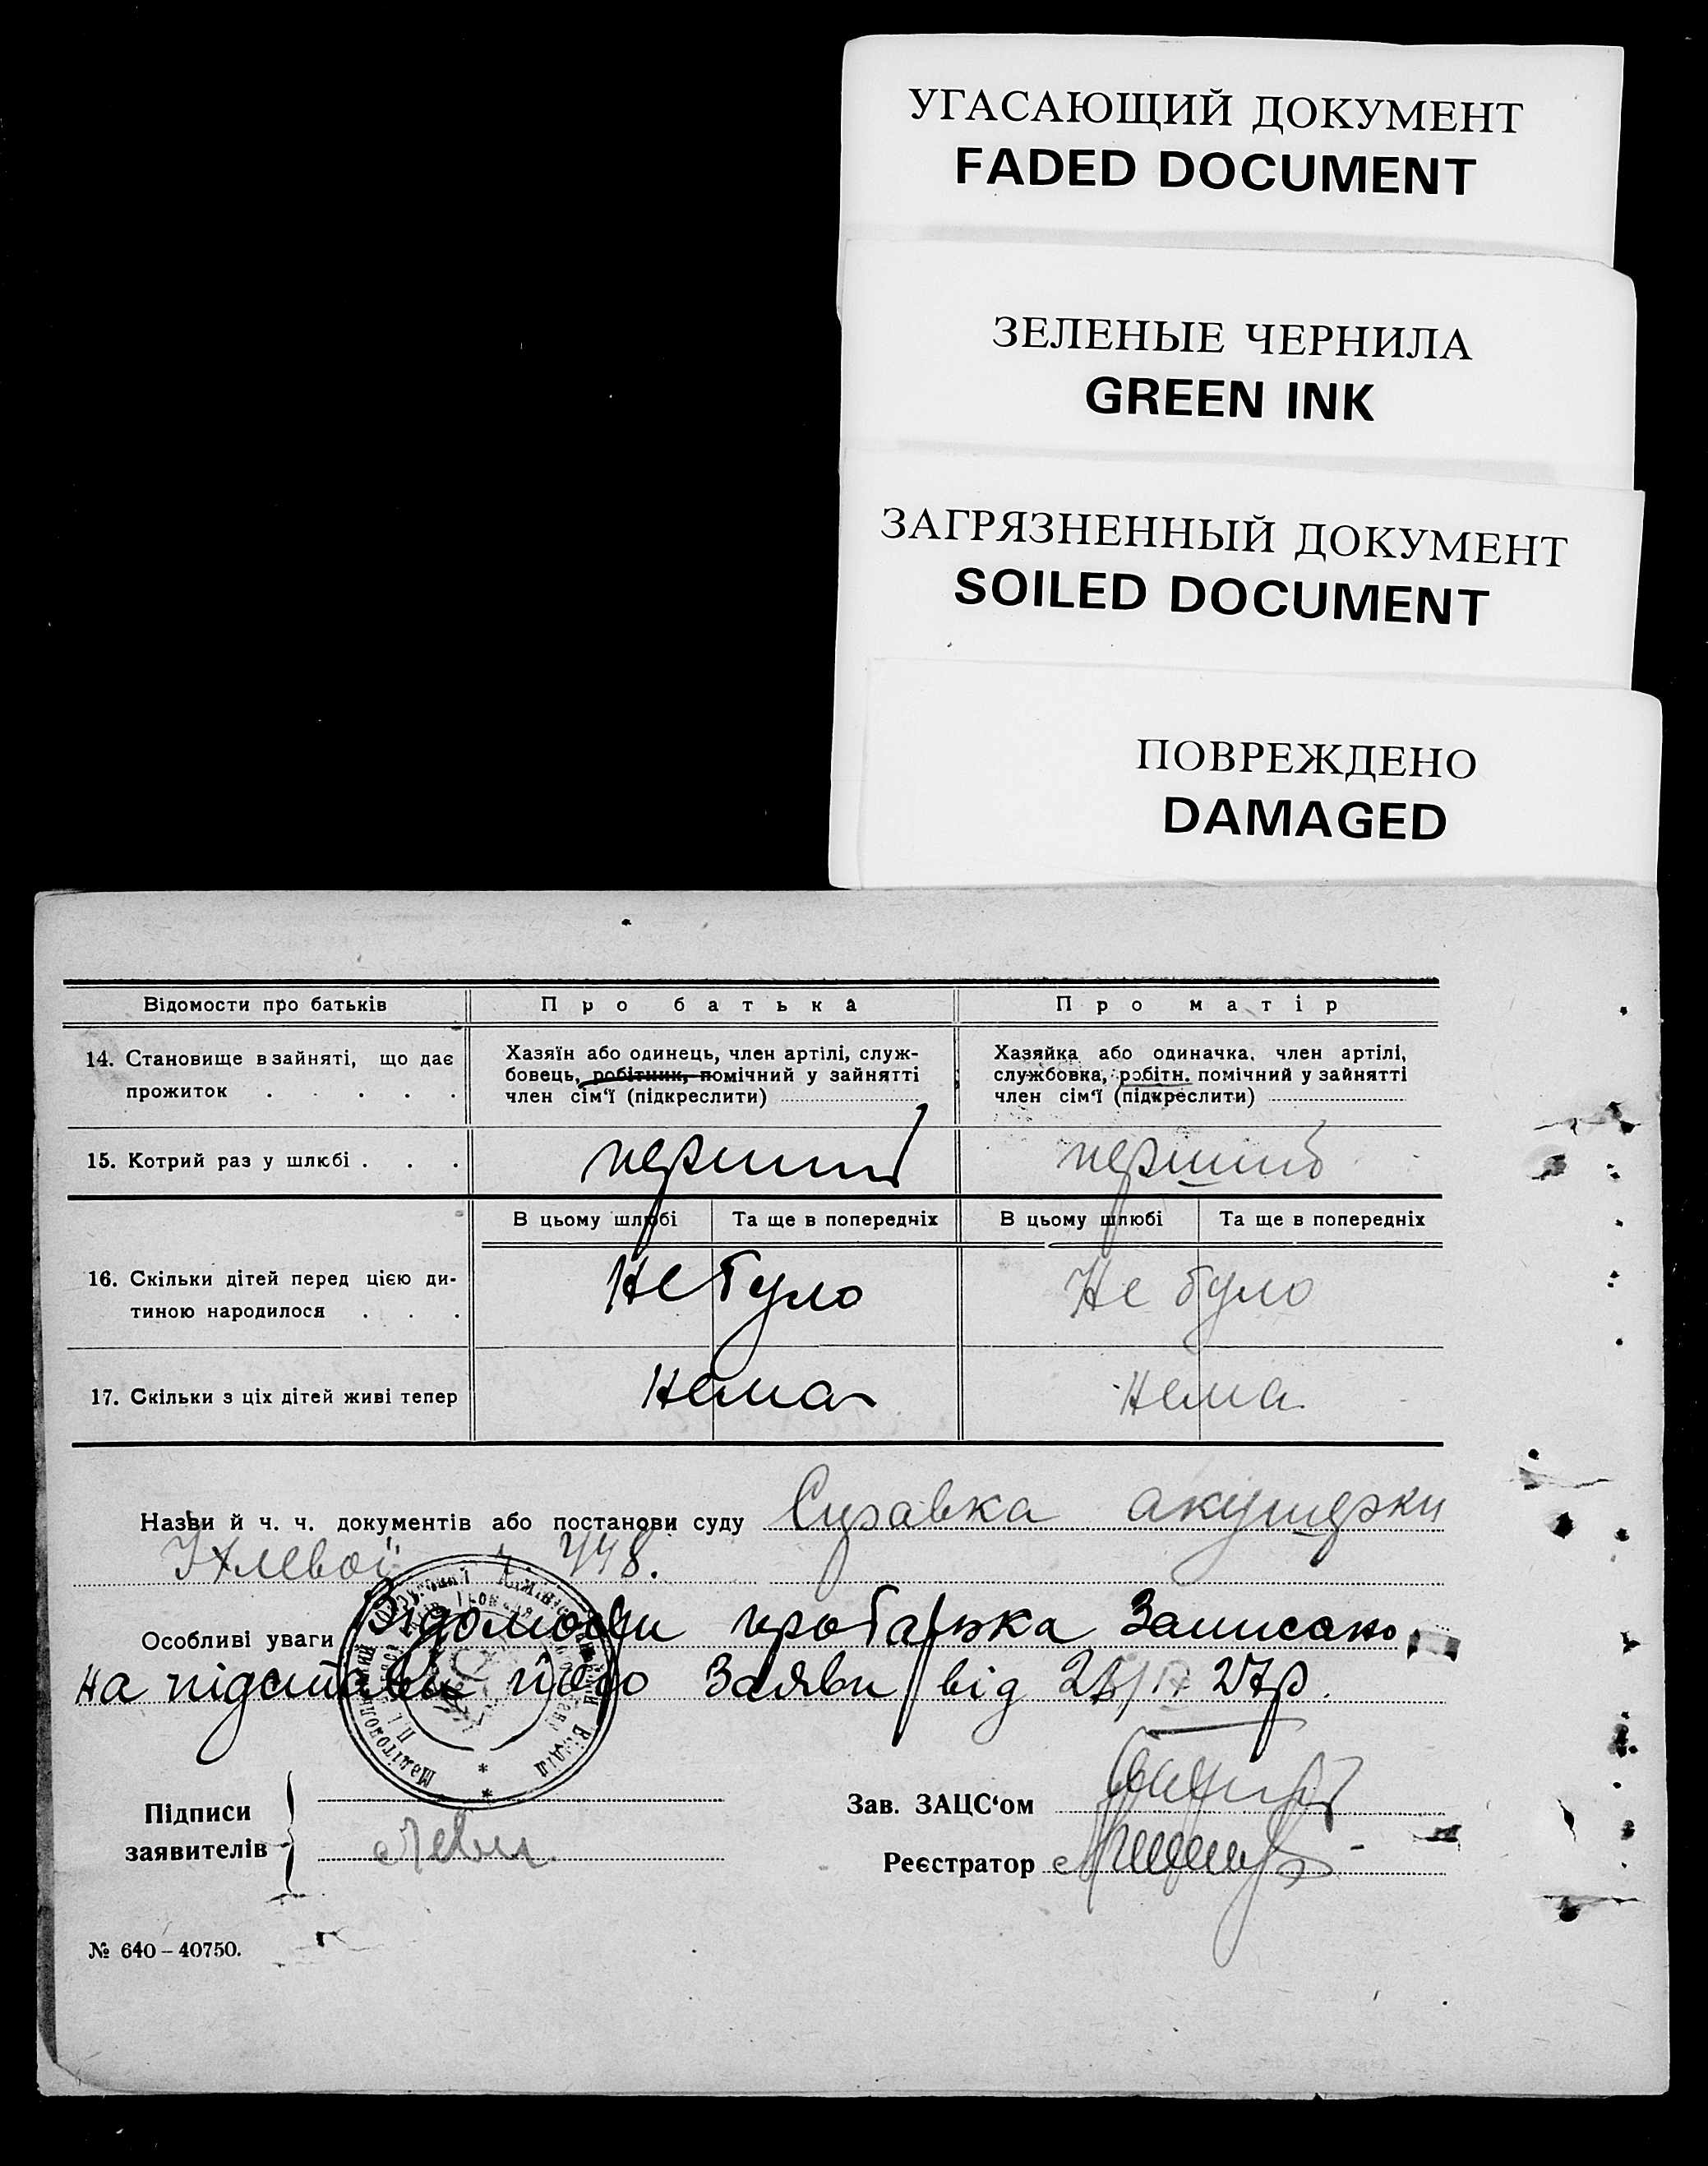 УГАСАЮЩИЙ ДОКУМЕНТ
FADED DOCUMENT
ЗЕЛЕНЫЕ ЧЕРНИЛА
GREEN INK
ЗАГРЯЗНЕННЫЙ ДОКУМЕНТ
SOILED DOCUMENT
ПОВРЕЖДЕНО
DAMAGED
Відомости про батьків
Про батька
Про матір
14. Становище в зайняті, що дає
прожиток . . . . .
Хазяїн або одинець, член артілі, служ-
бовець, робітник, помічний у зайнятті
член сім'ї (підкреслити)
Хазяйка або одиначка, член артілі,
службовка, робітн. помічний у зайнятті
член сім'ї (підкреслити)
15. Котрий раз у шлюбі . . .
перший
перший
В цьому шлюбі
Та ще в попередніх
В цьому шлюбі
Та ще в попередніх
16. Скільки дітей перед цією ди-
тиною народилося . . .
Не було
Не було
17. Скільки з ціх дітей живі тепер
Нема
Нема
Назви й ч. ч. документів або постанови суду Справка акушерки
448.
Особливі уваги Відомости про батька Записано
на підставі його Заяви від 27р.
Підписи
заявителів
Зав. ЗАЦС'ом
Реєстратор
№ 640 – 40750.